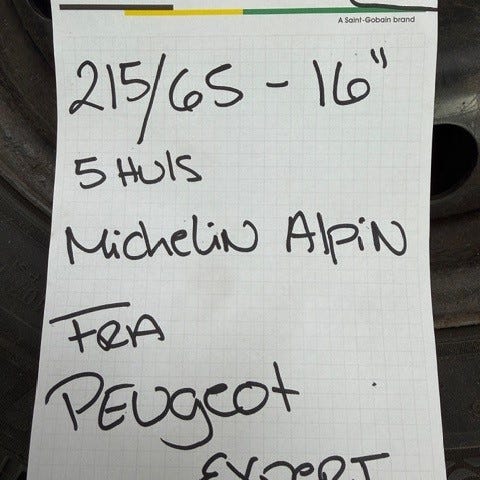 A Saint-Gobain brand
215/65 - 16"
5 HUlS
Michelin Alpin
FRA
PEUgeot
EXPERT